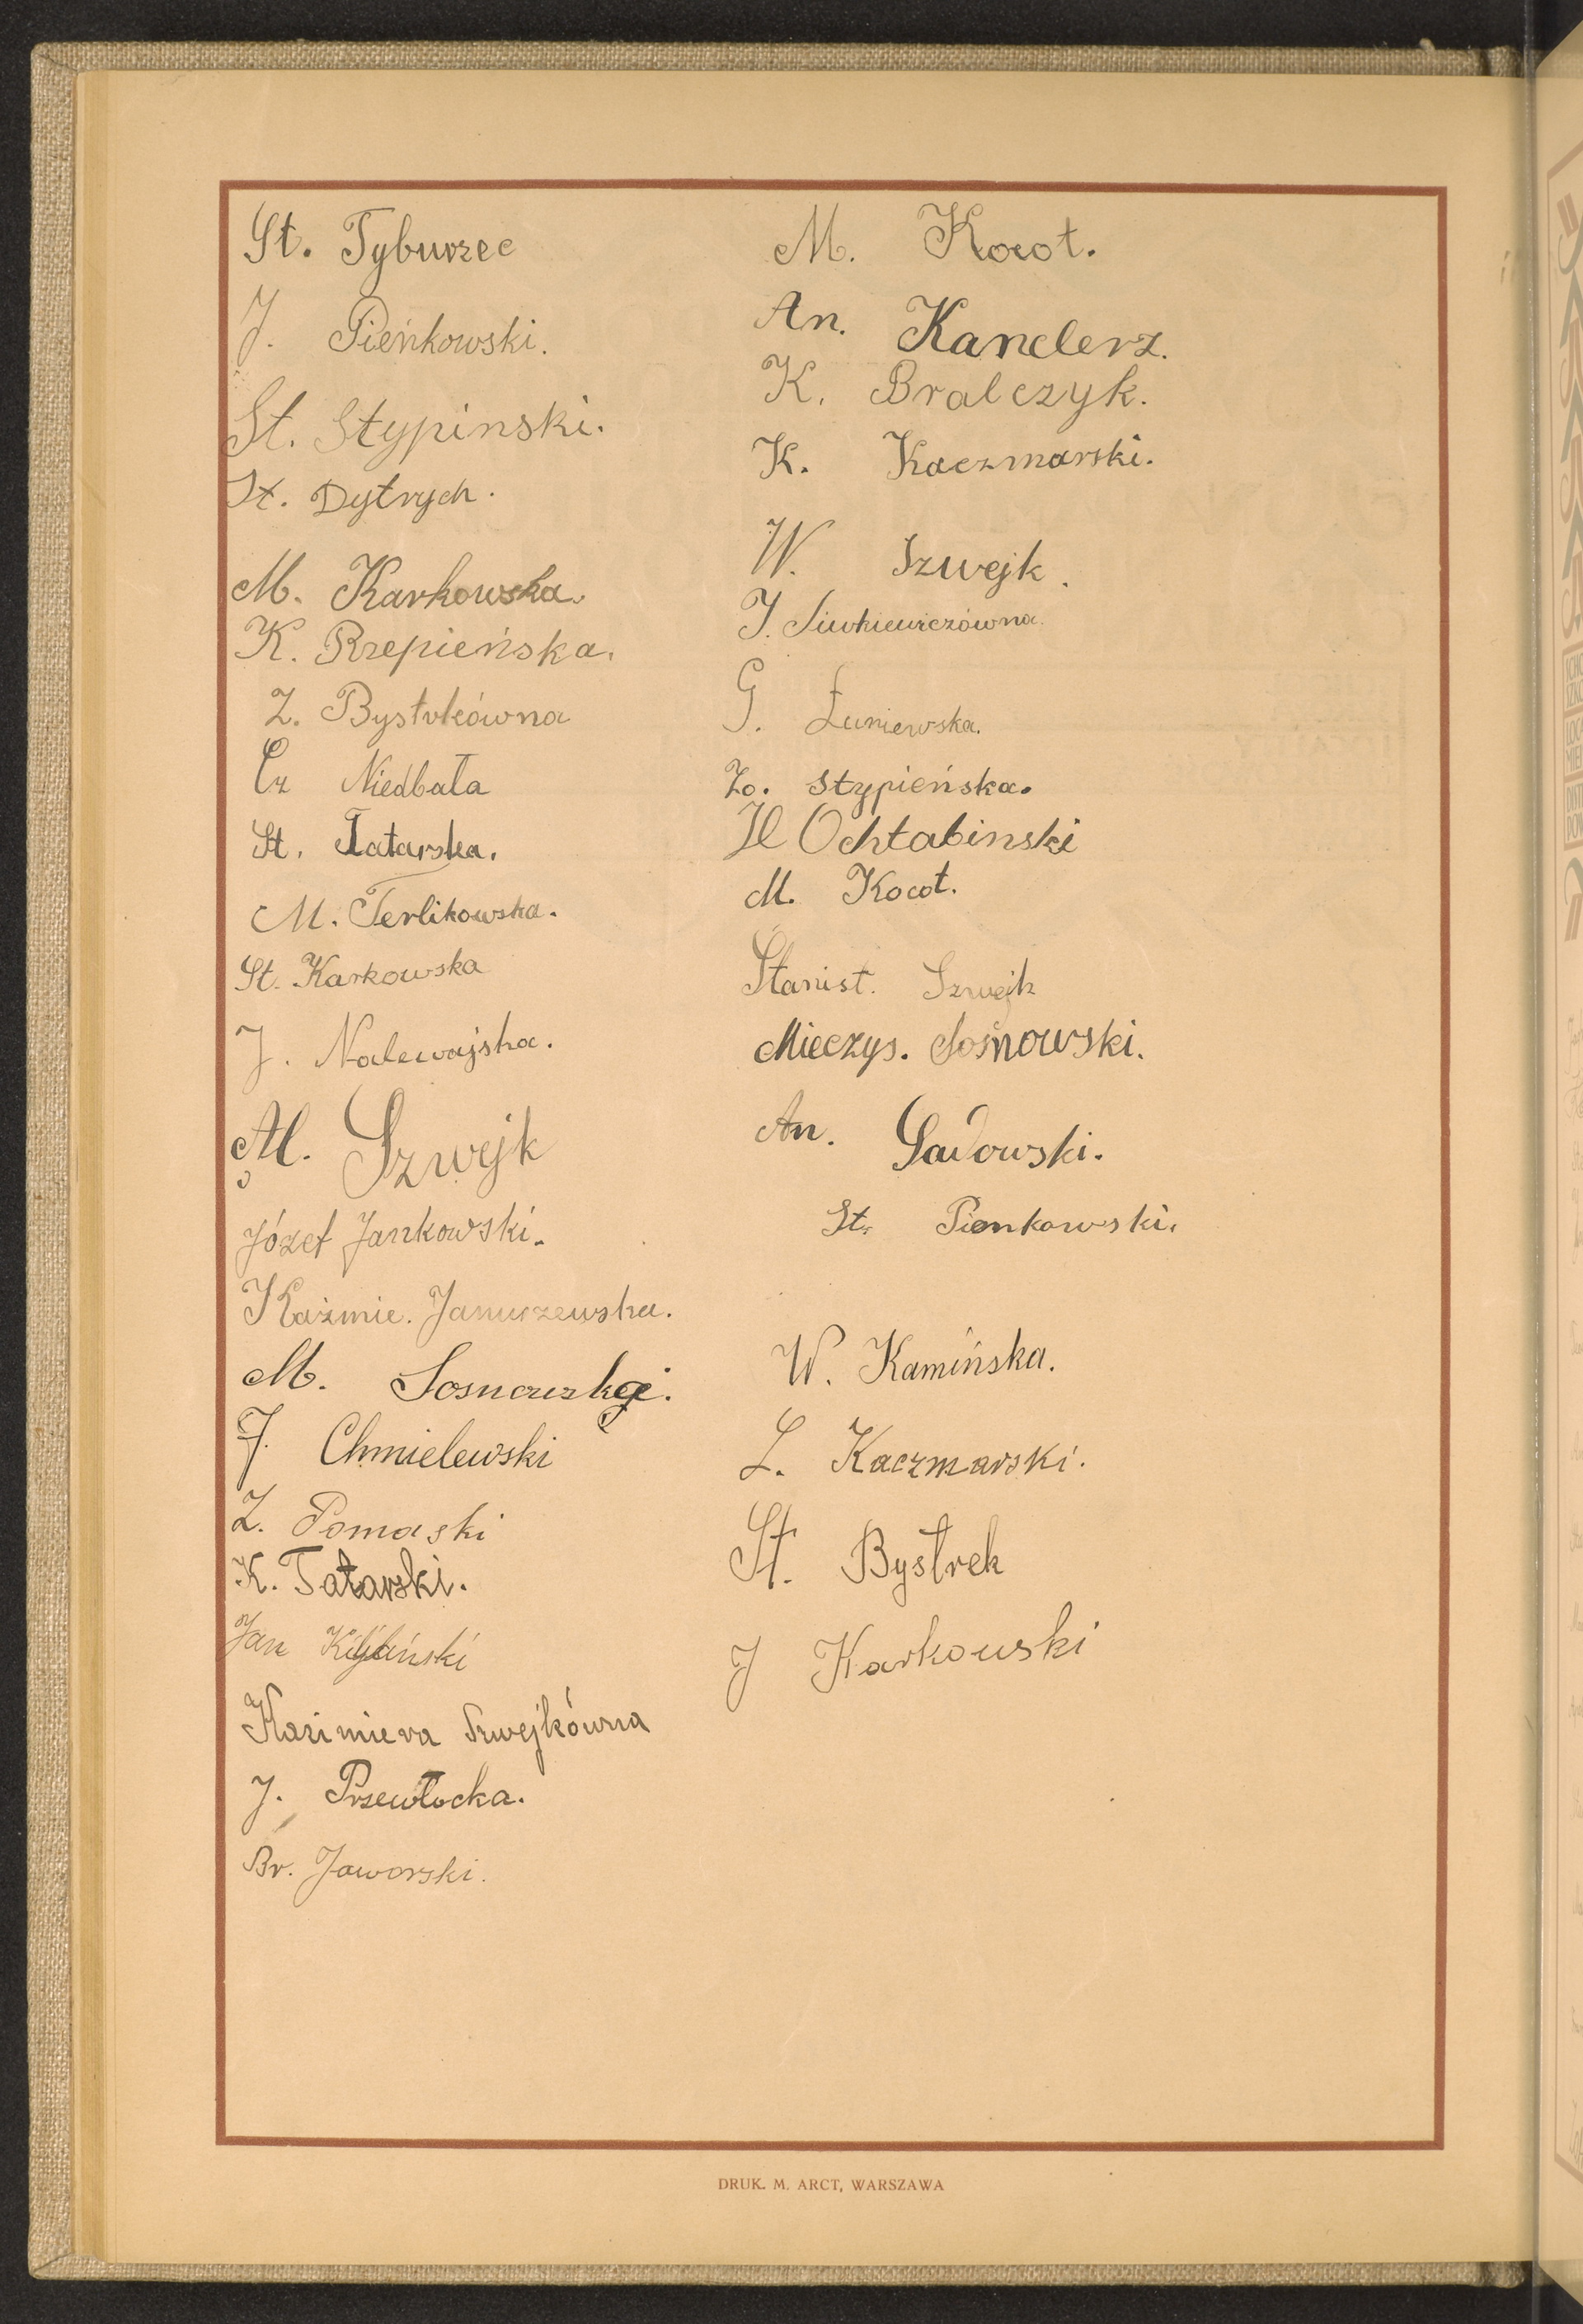 St. Tyburzec
J. Pieńkowski.
St. Stypinski.
St. Dytrych.
M. Karkowska.
K. Rzepieńska.
Z. Bystrkówna
Cz Niedbała
St. Tatarska.
M. Terlikowska.
St. Karkowska
J. Nalewajska.
M. Szwejk
Józef Jankowski.
Kaźmie. Januszewska.
M. Sosnowski.
J. Chmielewski
Z. Pomaski
K. Tatarski.
Jan
Kazimiera Szwejkówna
J. Przewłocka.
Br. Jaworski.
M. Kocot.
An. Kanclerz.
K. Bralczyk.
K. Kaczmarski.
W. Szwejk.
J. Siwkiewiczówna.
G. Łuniewska.
Zo. Stypieńska.
H Ochtabinski
M. Kocot.
Stanisł. Szwejk
Mieczys. Sosnowski.
An. Sadowski.
St. Pienkowski.
W. Kamińska.
L. Kaczmarski.
St. Bystrek
J Karkowski
DRUK. M. ARCT, WARSZAWA